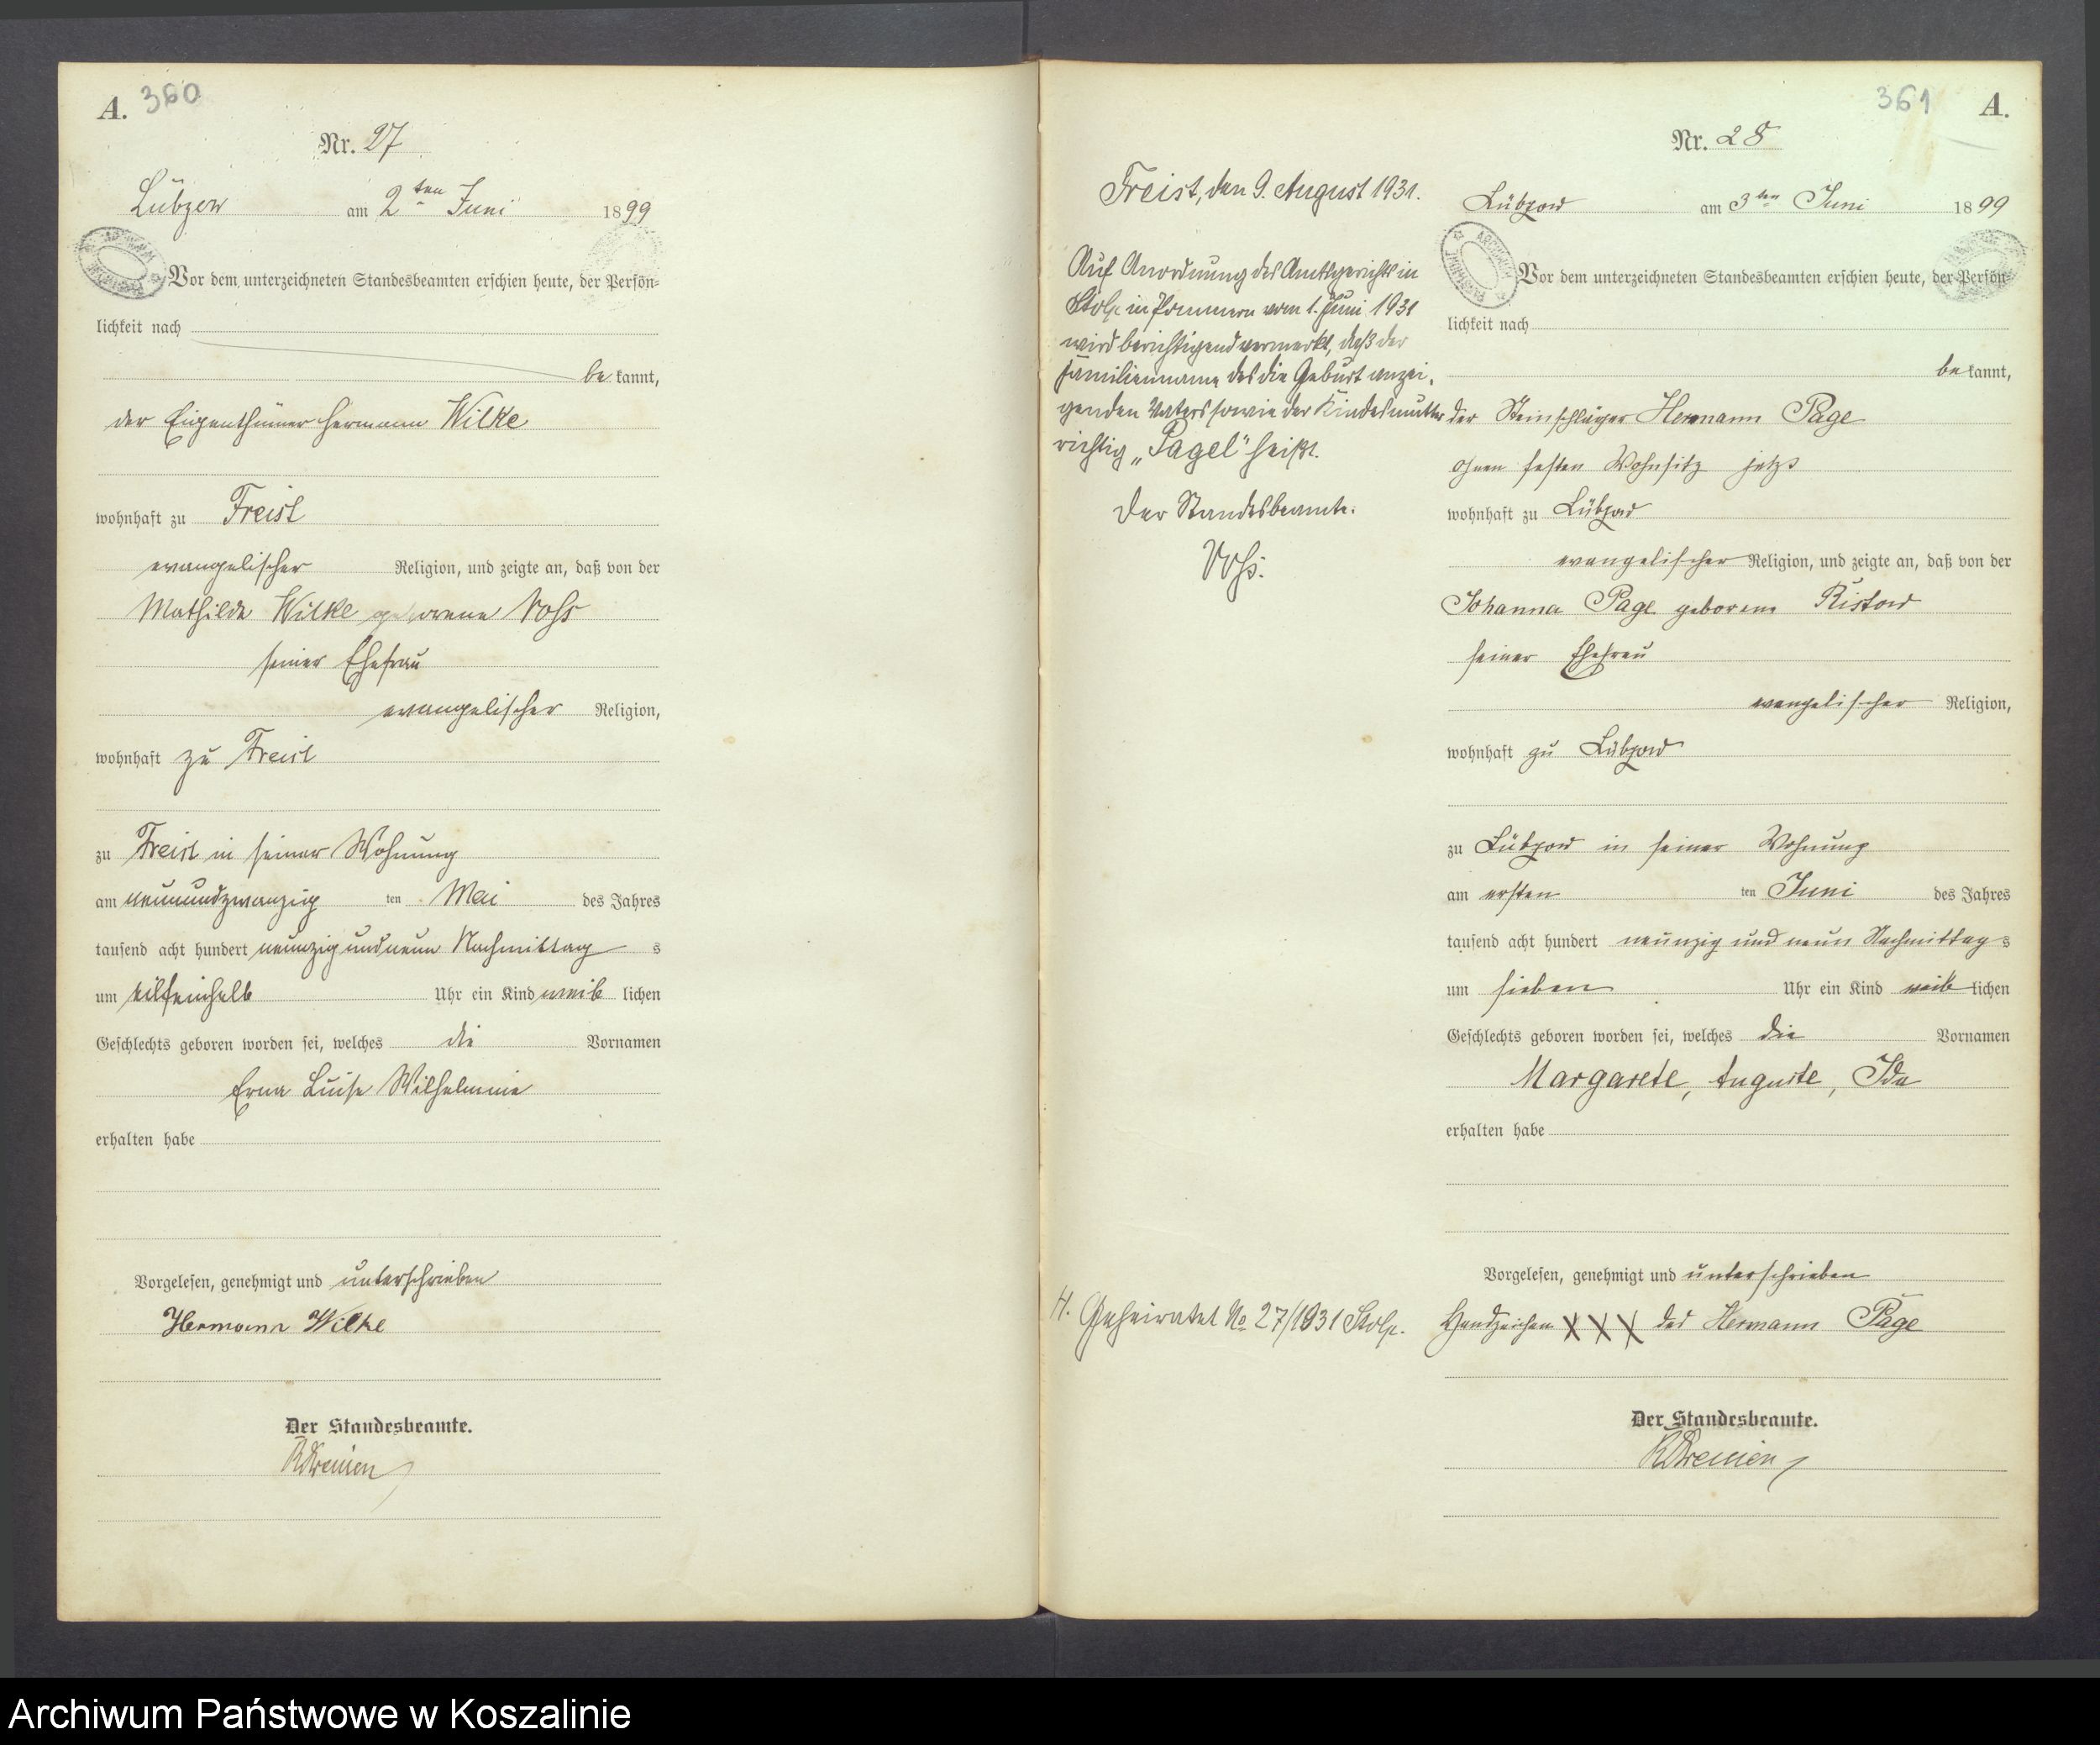 A. 360
Nr. 27
Lübzow am 2ten Juni 1899
Vor dem unterzeichneten Standesbeamten erschien heute, der Persön-
lichkeit nach
be kannt,
der Eigenthümer Hermann Wilke
wohnhaft zu Freist
evangelischer Religion, und zeigte an, daß von der
Mathilde Wilke geborene Vohs
seiner Ehefrau
evangelischer Religion,
wohnhaft zu Freist
zu Freist in seiner Wohnung
am neunundzwanzig ten Mai des Jahres
tausend acht hundert neunzig und neun Nachmittag s
um eilfeinhalb Uhr ein Kind weib lichen
Geschlechts geboren worden sei, welches die Vornamen
Erna Luise Wilhelmine
erhalten habe
Vorgelesen, genehmigt und unterschrieben
Hermann Wilke
Der Standesbeamte.
361 A.
Nr. 28
Lübzow am 3ten Juni 1899
Vor dem unterzeichneten Standesbeamten erschien heute, der Persön-
lichkeit nach
be kannt,
der Steinschläger Hermann Page
ohnen festen Wohnsitz jetzt
wohnhaft zu Lübzow
evangelischer Religion, und zeigte an, daß von der
Johanna Page geborene Ristow
seiner Ehefrau
evangelischer Religion,
wohnhaft zu Lübzow
zu Lübzow in seiner Wohnung
am ersten ten Juni des Jahres
tausend acht hundert neunzig und neun Nachmittag s
um sieben Uhr ein Kind weib lichen
Geschlechts geboren worden sei, welches die Vornamen
Margarete, Auguste, Ida
erhalten habe
Vorgelesen, genehmigt und unterschrieben
Handzeichen XXX des Hermann Page
Der Standesbeamte.
Freist, den 9. August 1931.
Auf Anordnung des Amtsgerichts in
Stolp in Pommern vom 1. Juni 1931
wird berichtigend vermerkt, daß der
Familienname des die Geburt anzei-
genden Vaters sowie der Kindesmutter
richtig „Pagel" heißt.
Der Standesbeamte.
Vohs.
H. Geheiratet No 27/1931 Stolp.
Archiwum Państwowe w Koszalinie